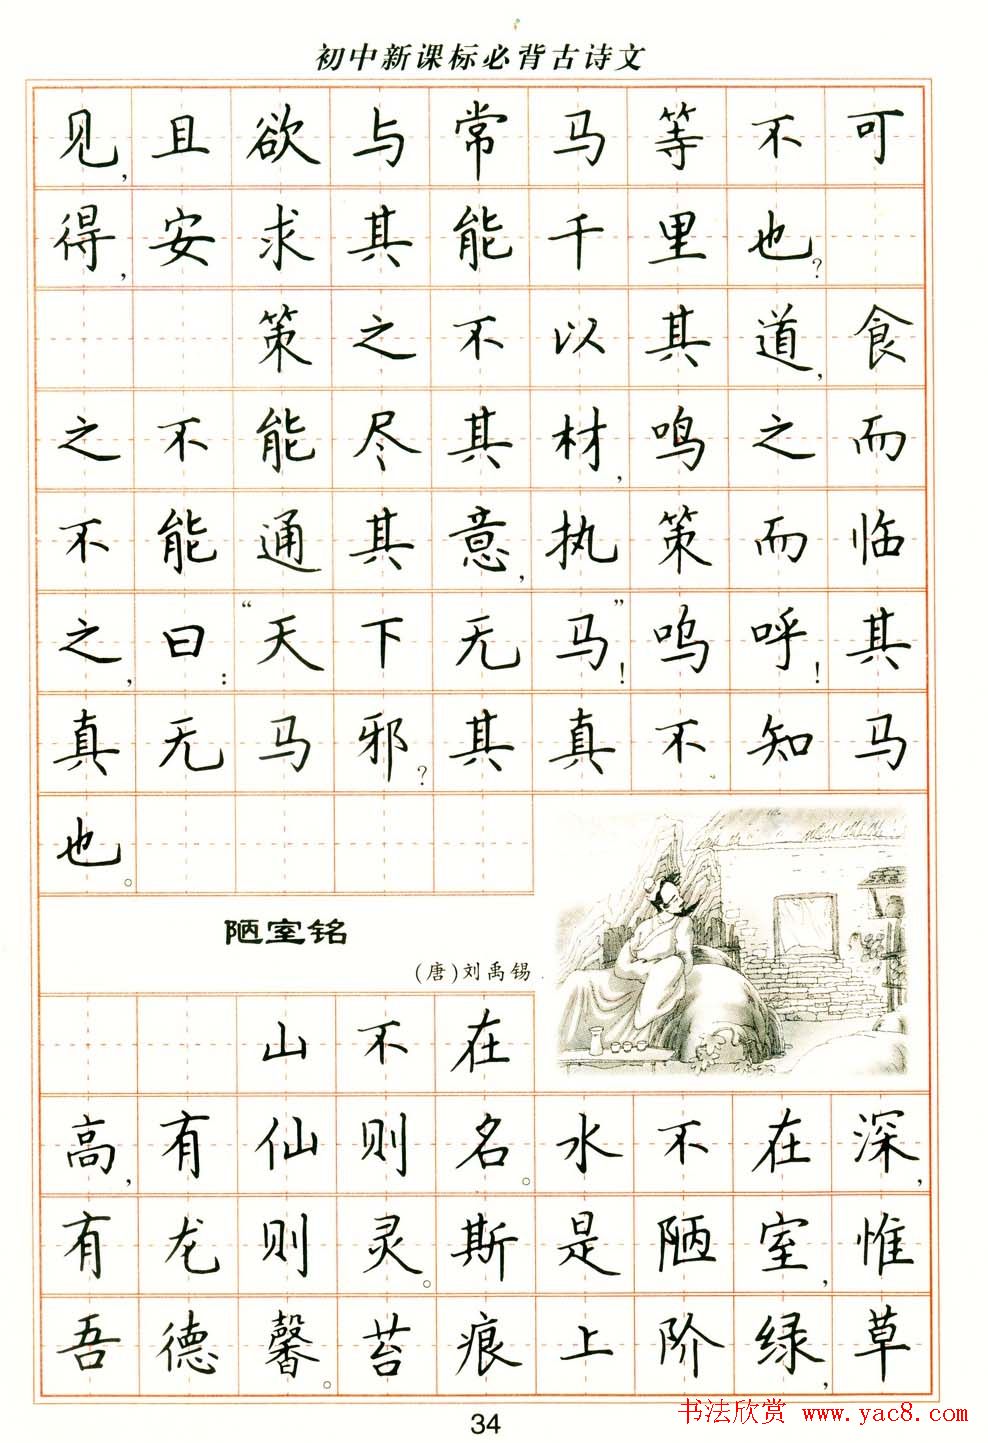 初中新课标必背古诗文
见,且欲与常马等不可
得,安求其能千里也?
策之不以其道,食
之不能尽其材,鸣之而
不能通其意,执策而临
之,曰:“天下无马”!呜呼!其
真无马邪?其真不知马
也。
陋室铭
(唐)刘禹锡
山不在
高,有仙则名。水不在深,
有龙则灵。斯是陋室,惟
吾德馨。苔痕上阶绿,草
34
书法欣赏 www.yac8.com